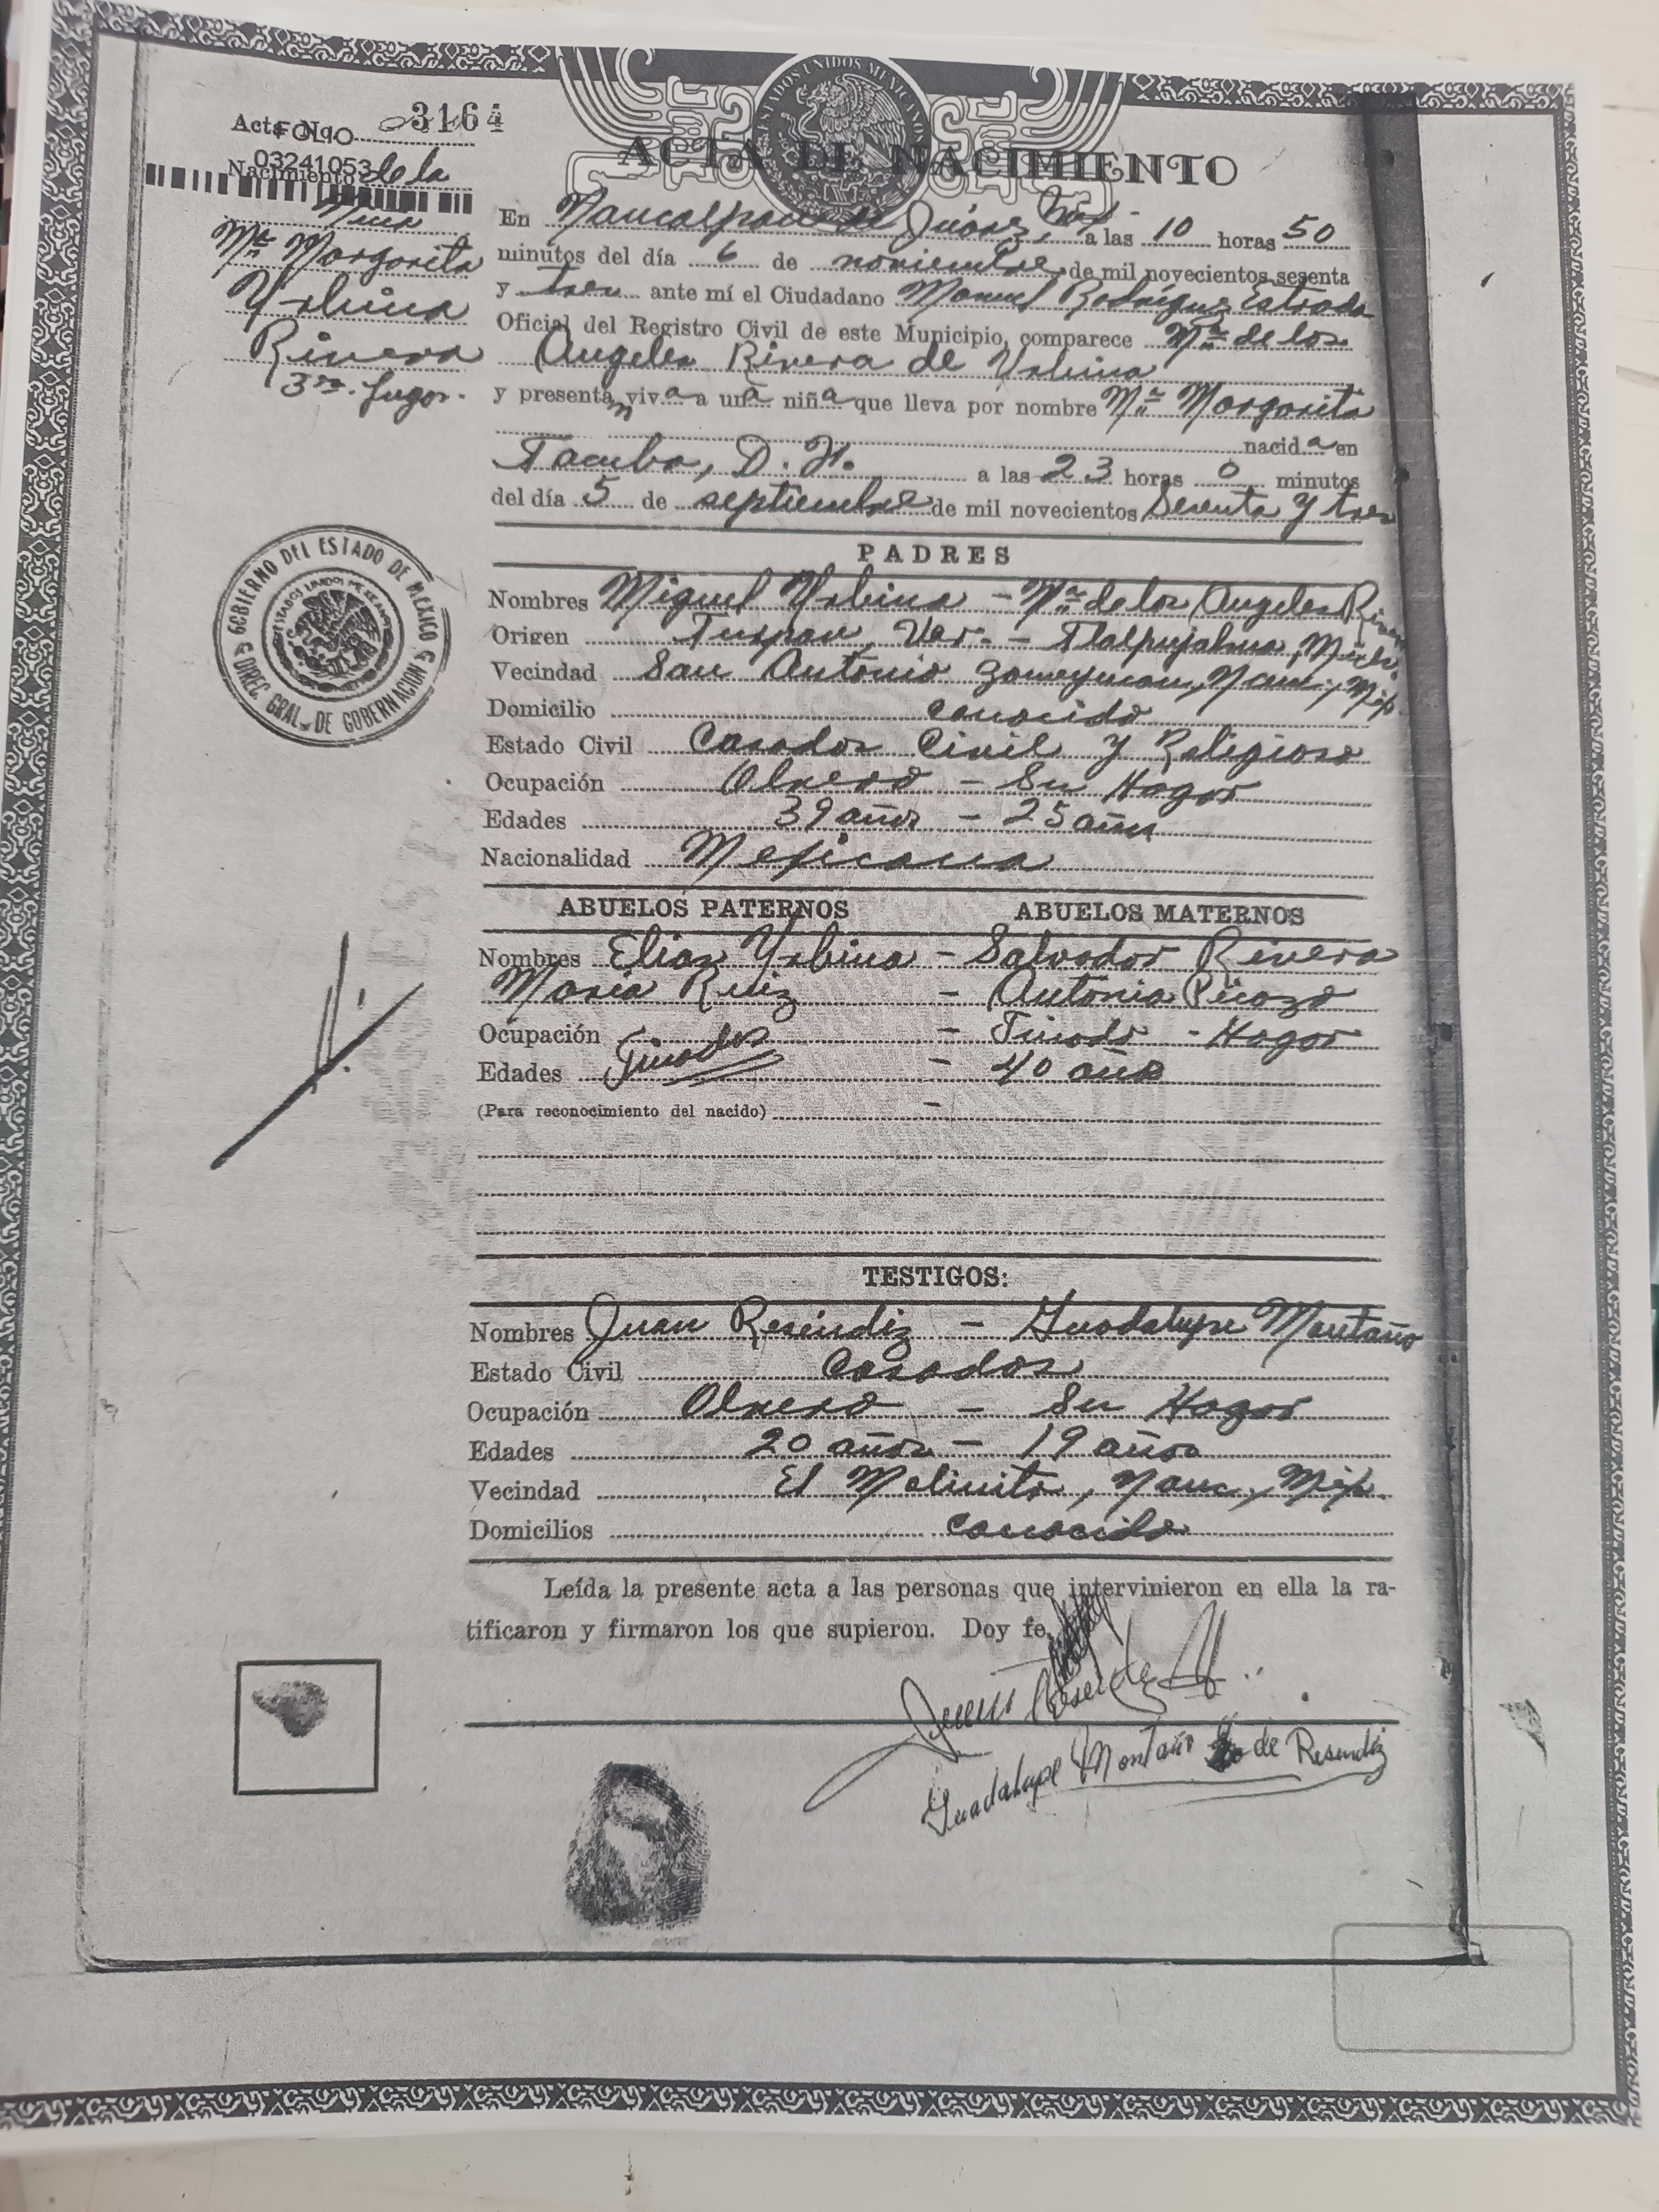 ESTADOS UNIDOS MEXICANOS
Acta No. 3164
FOLIO
03241053
ACTA DE NACIMIENTO
Nacimiento de la
Niña
Ma Margarita
Urbina
Rivera
3er. Lugar.
En Naucalpan de Juárez, Mex- a las 10 horas 50
minutos del día 6 de noviembre de mil novecientos sesenta
y tres ante mí el Ciudadano Manuel Rodríguez Estrada
Oficial del Registro Civil de este Municipio, comparece Ma de los
Angeles Rivera de Urbina
y presentan viva a una niña que lleva por nombre Ma Margarita
nacida en
Tacuba, D. F. a las 23 horas 0 minutos
del día 5 de septiembre de mil novecientos Sesenta y tres
PADRES
Nombres Miguel Urbina - Ma de los Angeles Rivera
Origen Tuxpan, Ver. - Tlalpujahua, Mich.
Vecindad San Antonio Zomeyucan, Nauc., Méx.
Domicilio conocido
Estado Civil Casados Civil y Religioso
Ocupación Obrero - Su Hogar
Edades 39 años - 25 años
Nacionalidad Mexicana
ABUELOS PATERNOS ABUELOS MATERNOS
Nombres Elias Urbina - Salvador Rivera
María Ruiz - Antonia
Ocupación Finados - Finado - Hogar
Edades - 40 años
(Para reconocimiento del nacido) -
TESTIGOS:
Nombres Juan Reséndiz - Guadalupe Montaño
Estado Civil Casados
Ocupación Obrero - Su Hogar
Edades 20 años - 19 años
Vecindad El Molinito, Nauc., Méx.
Domicilios conocido
Leída la presente acta a las personas que intervinieron en ella la ra-
tificaron y firmaron los que supieron. Doy fe.
Guadalupe Montaño de Resendiz
GOBIERNO DEL ESTADO DE MEXICO
ESTADOS UNIDOS MEXICANOS
DIREC. GRAL. DE GOBERNACION